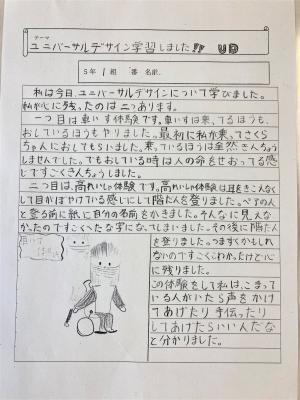 テーマ
ユニバーサルデザイン学習しました!! UD
5年 1組 番 名前
私は今日、ユニバーサルデザインについて学びました。
私が心に残ったのは二つあります。
一つ目は車いす体験です。車いすは乗ってるほうも、
おしているほうもやりました。最初に私が乗ってさくら
ちゃんにおしてもらいました。乗っているほうは全然きんちょう
しませんでした。でもおしている時は人の命をせおってる感
じですごくきんちょうしました。
二つ目は、高れいしゃ体験です。高れいしゃ体験は耳をきこえなく
して目がぼやけている感じにして階だんを登りました。ペアの人
と登る前に紙に自分の名前をかきました。そんなに見えな
かったのですごくへたな字になってしまいました。その後に階だん
を登りました。つまずくかもしれ
ないのですごくこわかったけど心
に残りました。
この体験をして私は、こまって
いる人がいたら声をかけ
てあげたり手伝ったり
してあげたらいいんだな
と分かりました。